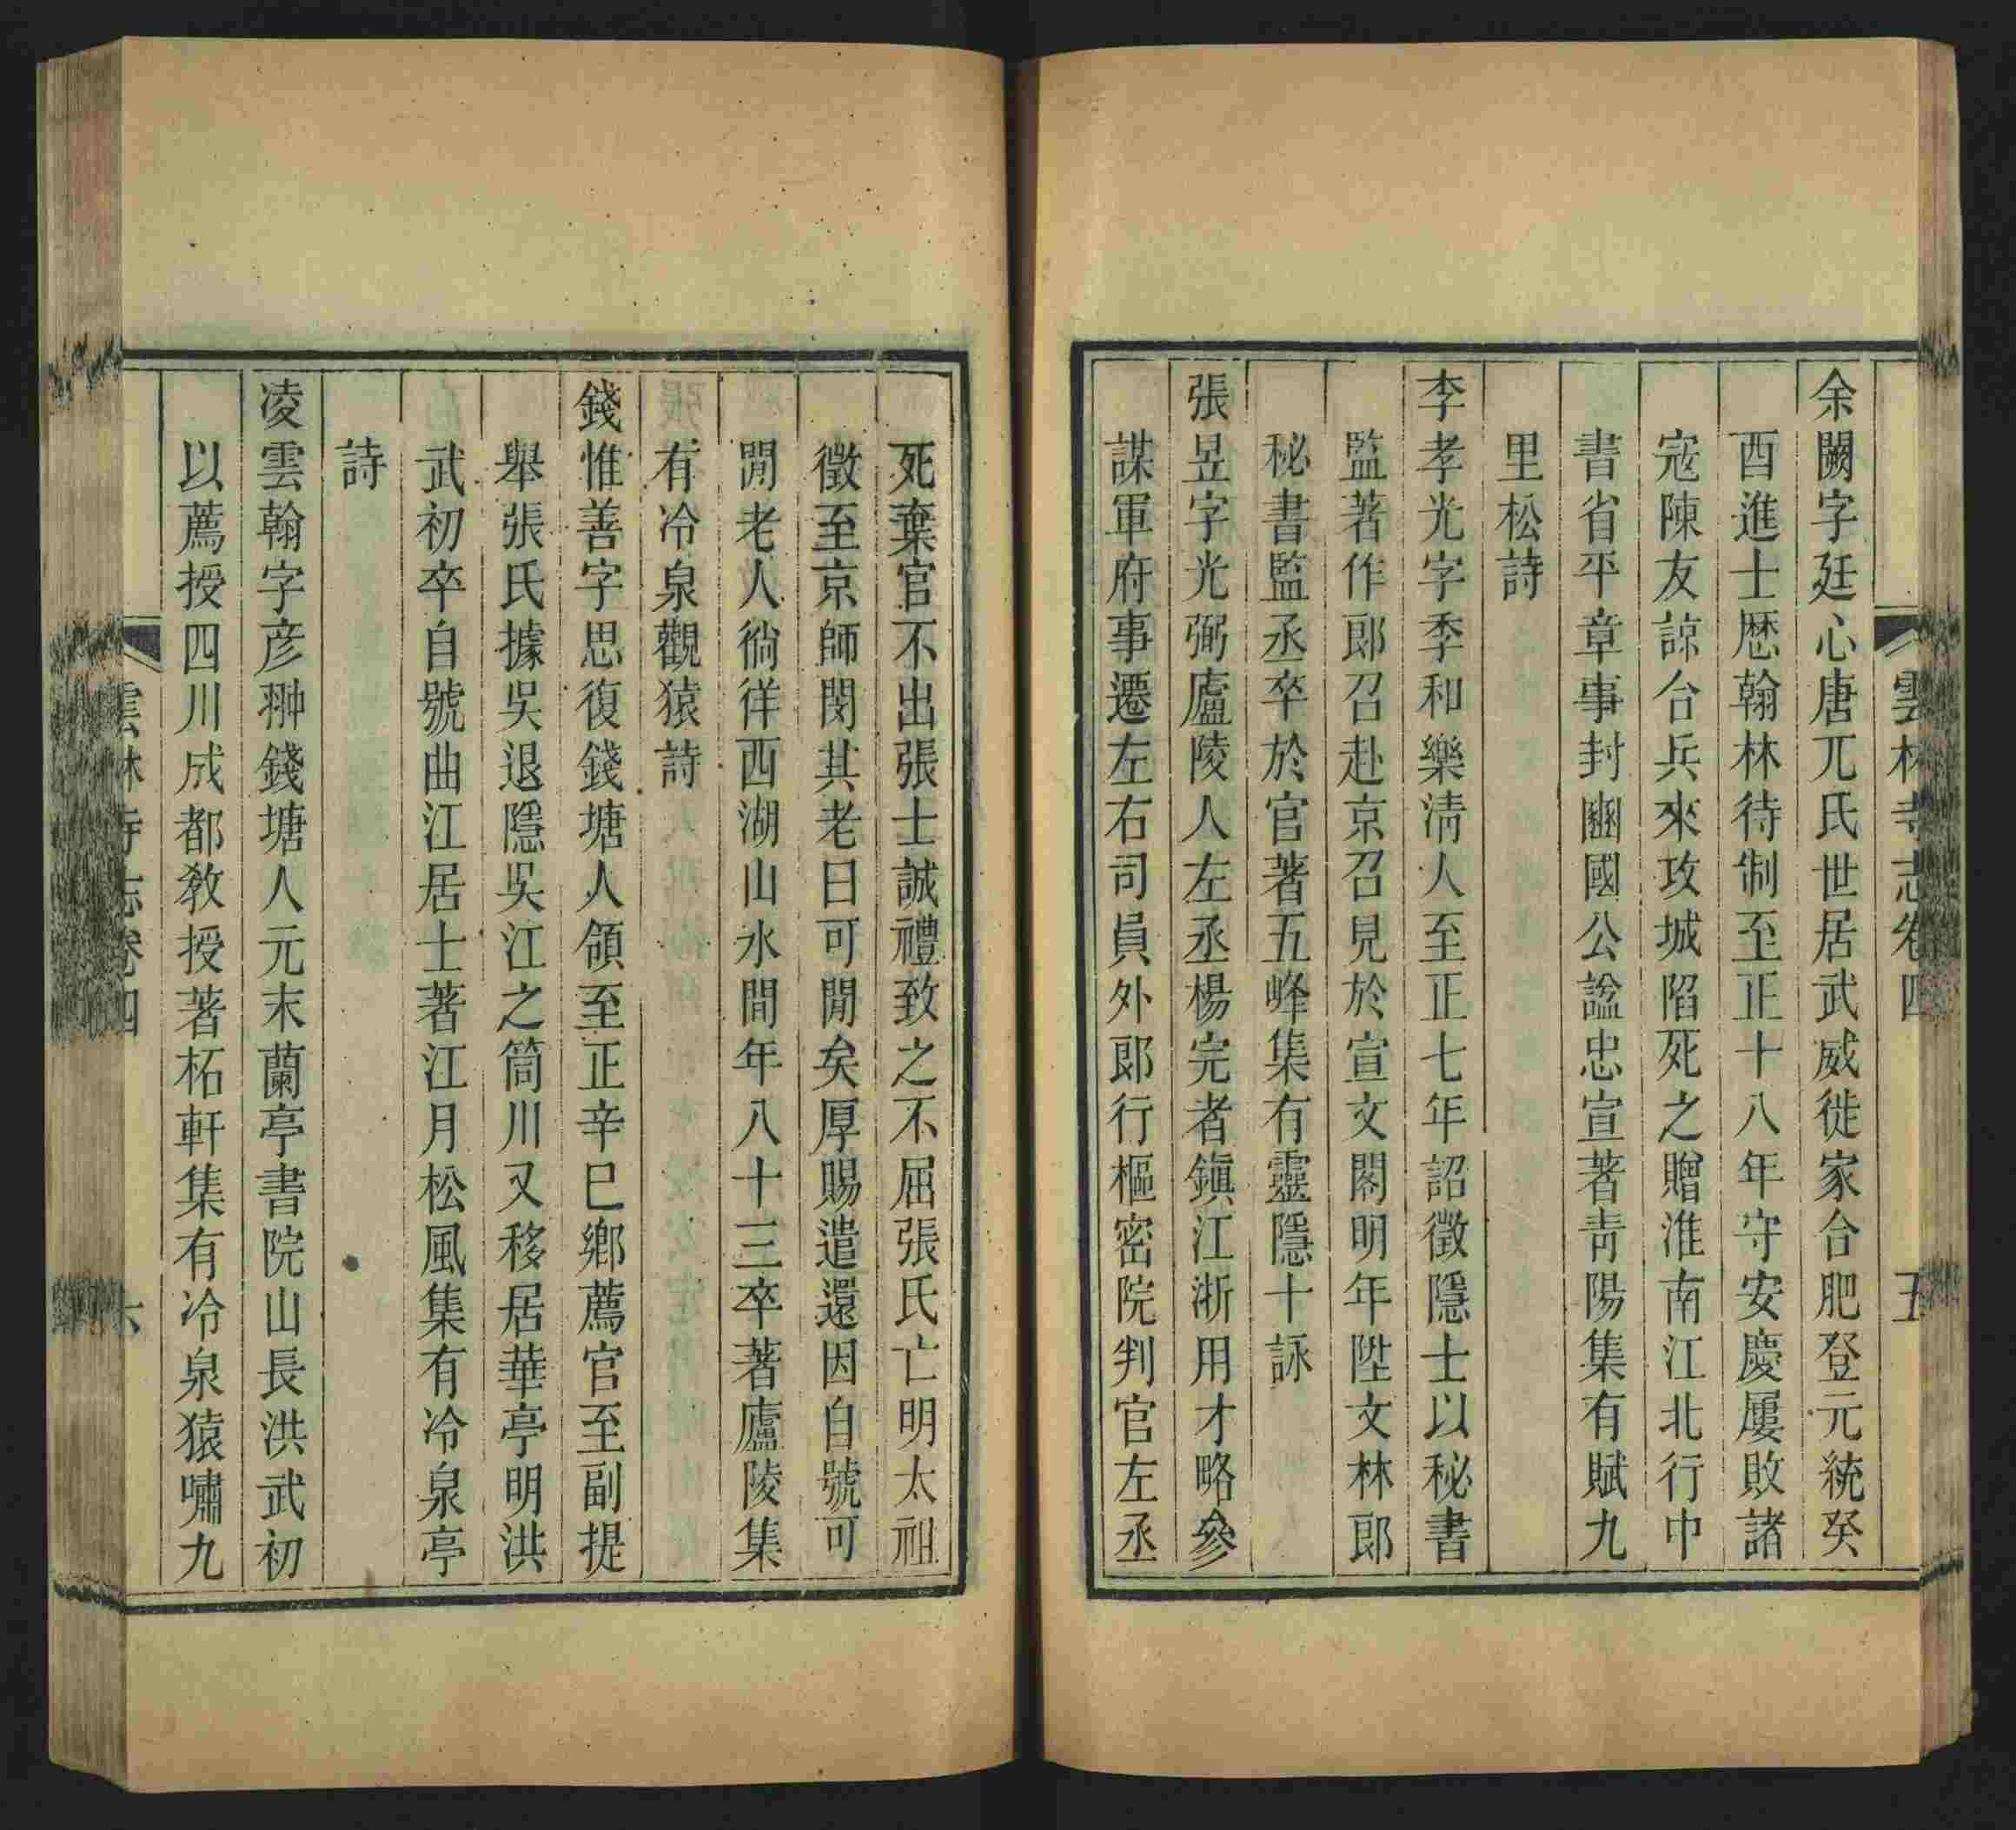 雲林寺志卷四
五
余闕字廷心唐兀氏世居武威徙家合肥登元統癸
酉進士歷翰林待制至正十八年守安慶屢敗諸
寇陳友諒合兵來攻城陷死之贈淮南江北行中
書省平章事封豳國公諡忠宣著靑陽集有賦九
里松詩
李孝光字季和樂淸人至正七年詔徵隱士以秘書
監著作郞召赴京召見於宣文閣明年陞文林郞
秘書監丞卒於官著五峰集有靈隱十詠
張昱字光弼廬陵人左丞楊完者鎭江浙用才略參
謀軍府事遷左右司員外郞行樞密院判官左丞
死棄官不出張士誠禮致之不屈張氏亡明太祖
徵至京師閔其老曰可閒矣厚賜遣還因自號可
閒老人徜徉西湖山水間年八十三卒著廬陵集
有冷泉觀猿詩
錢惟善字思復錢塘人領至正辛巳鄕薦官至副提
舉張氏據吳退隱吳江之筒川又移居華亭明洪
武初卒自號曲江居士著江月松風集有冷泉亭
詩
凌雲翰字彥翀錢塘人元末蘭亭書院山長洪武初
以薦授四川成都敎授著柘軒集有冷泉猿嘯九
雲林寺志卷四
六